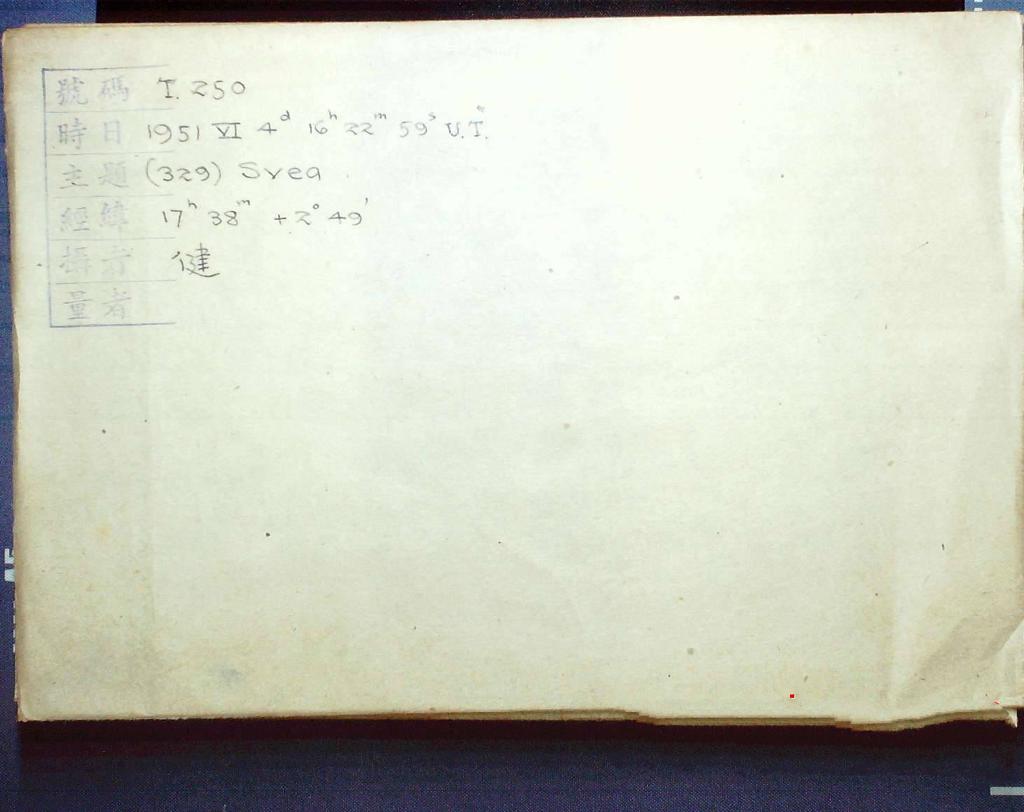 號碼 T. 250
時日 1951 VI 4ᵈ 16ʰ 22ᵐ 59ˢ U.T.
主題 (329) Svea
經緯 17ʰ 38ᵐ +2° 49'
攝者 健
量者